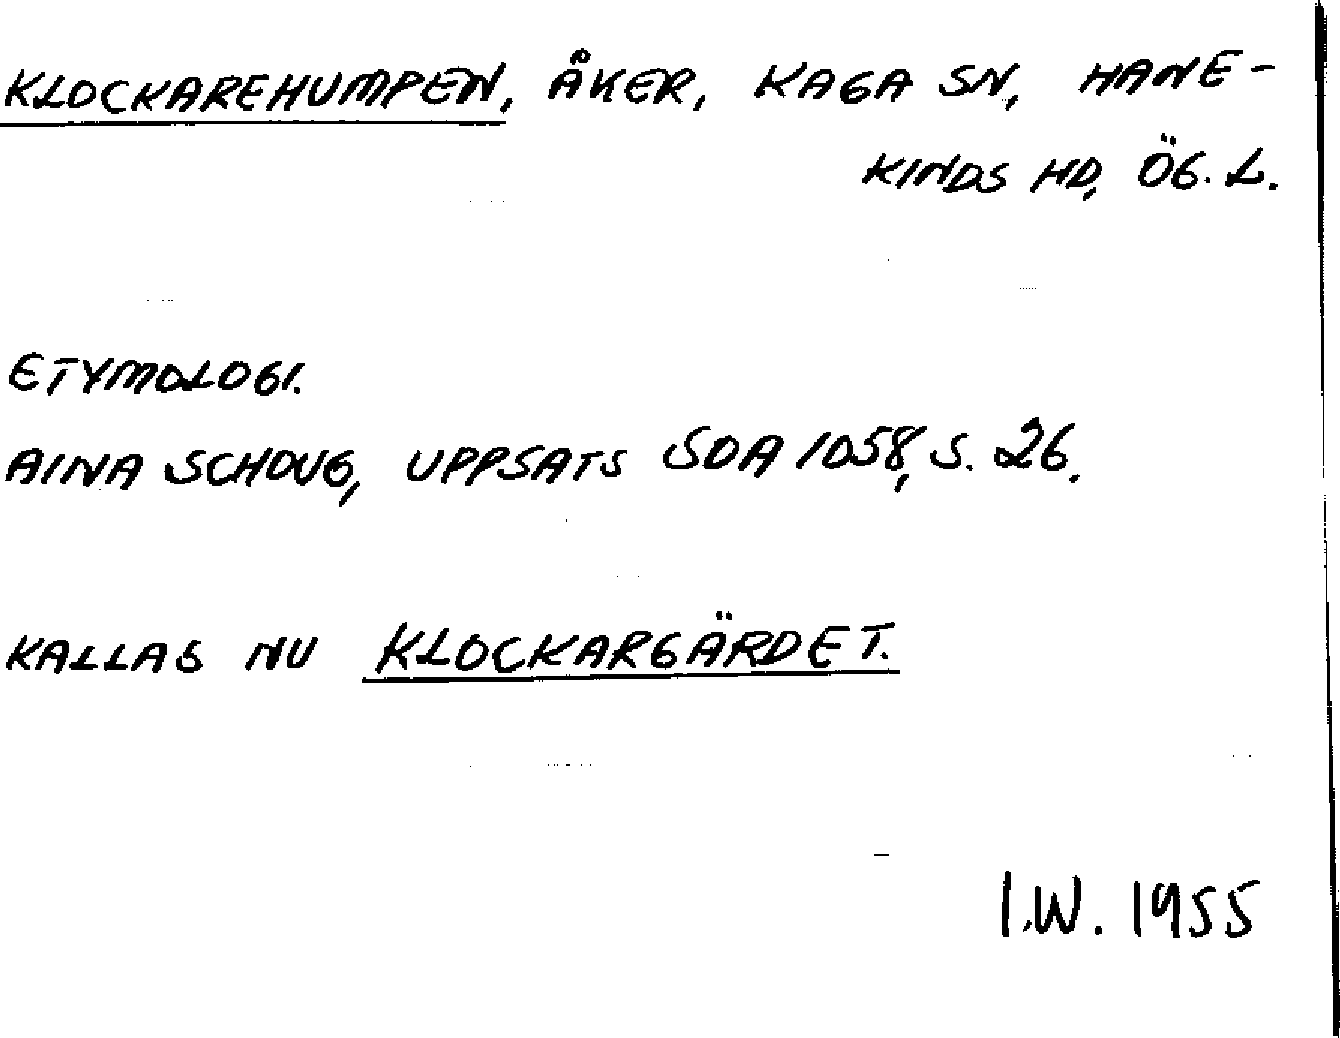 KLOCKAREHUMPEN, ÅKER, KAGA SN, HANE-
KINDS HD, ÖG. L.
ETYMOLOGI.
AINA SCHOUG, UPPSATS SOA 1058, S. 26.
KALLAS NU KLOCKARGÄRDET.
I.W. 1955